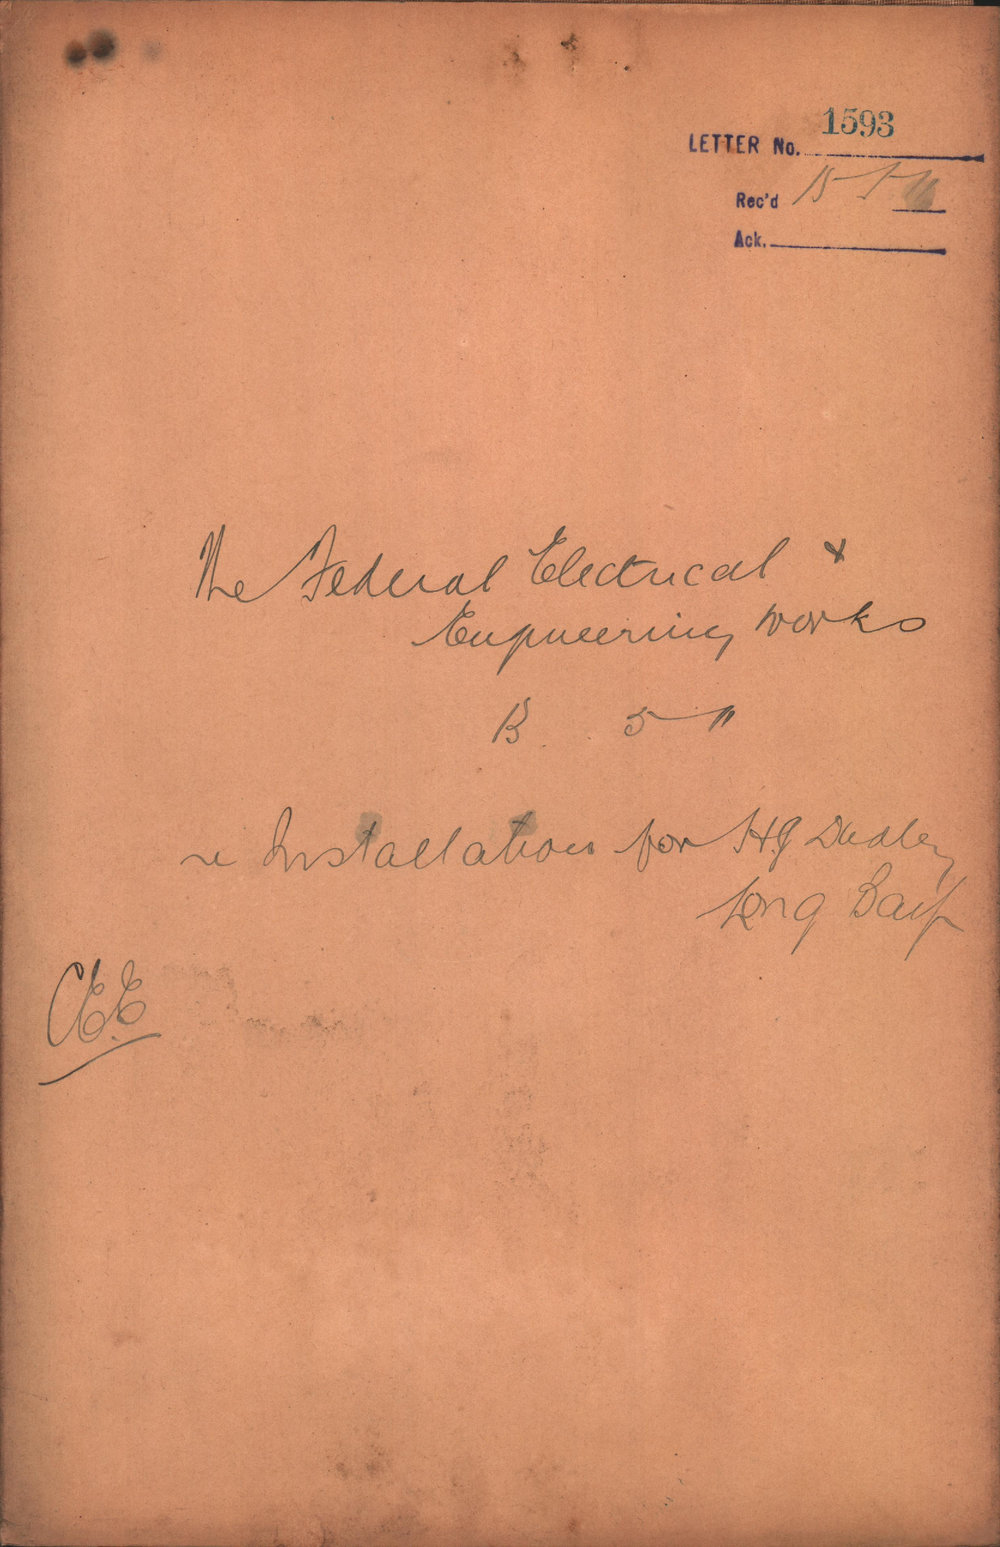 LETTER No. 1593
Rec'd 15 5 11
Ack.
The Federal Electrical &
Engineering Works
5 11
re Installation for H G Dudley
Long Bay
CEE